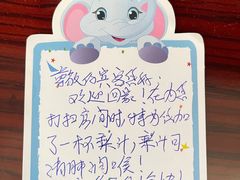 尊敬的宾客您好：
欢迎回家！在为您
打扫房间时，特为您加
了一杯梨汁，梨汁可
清肺润喉！